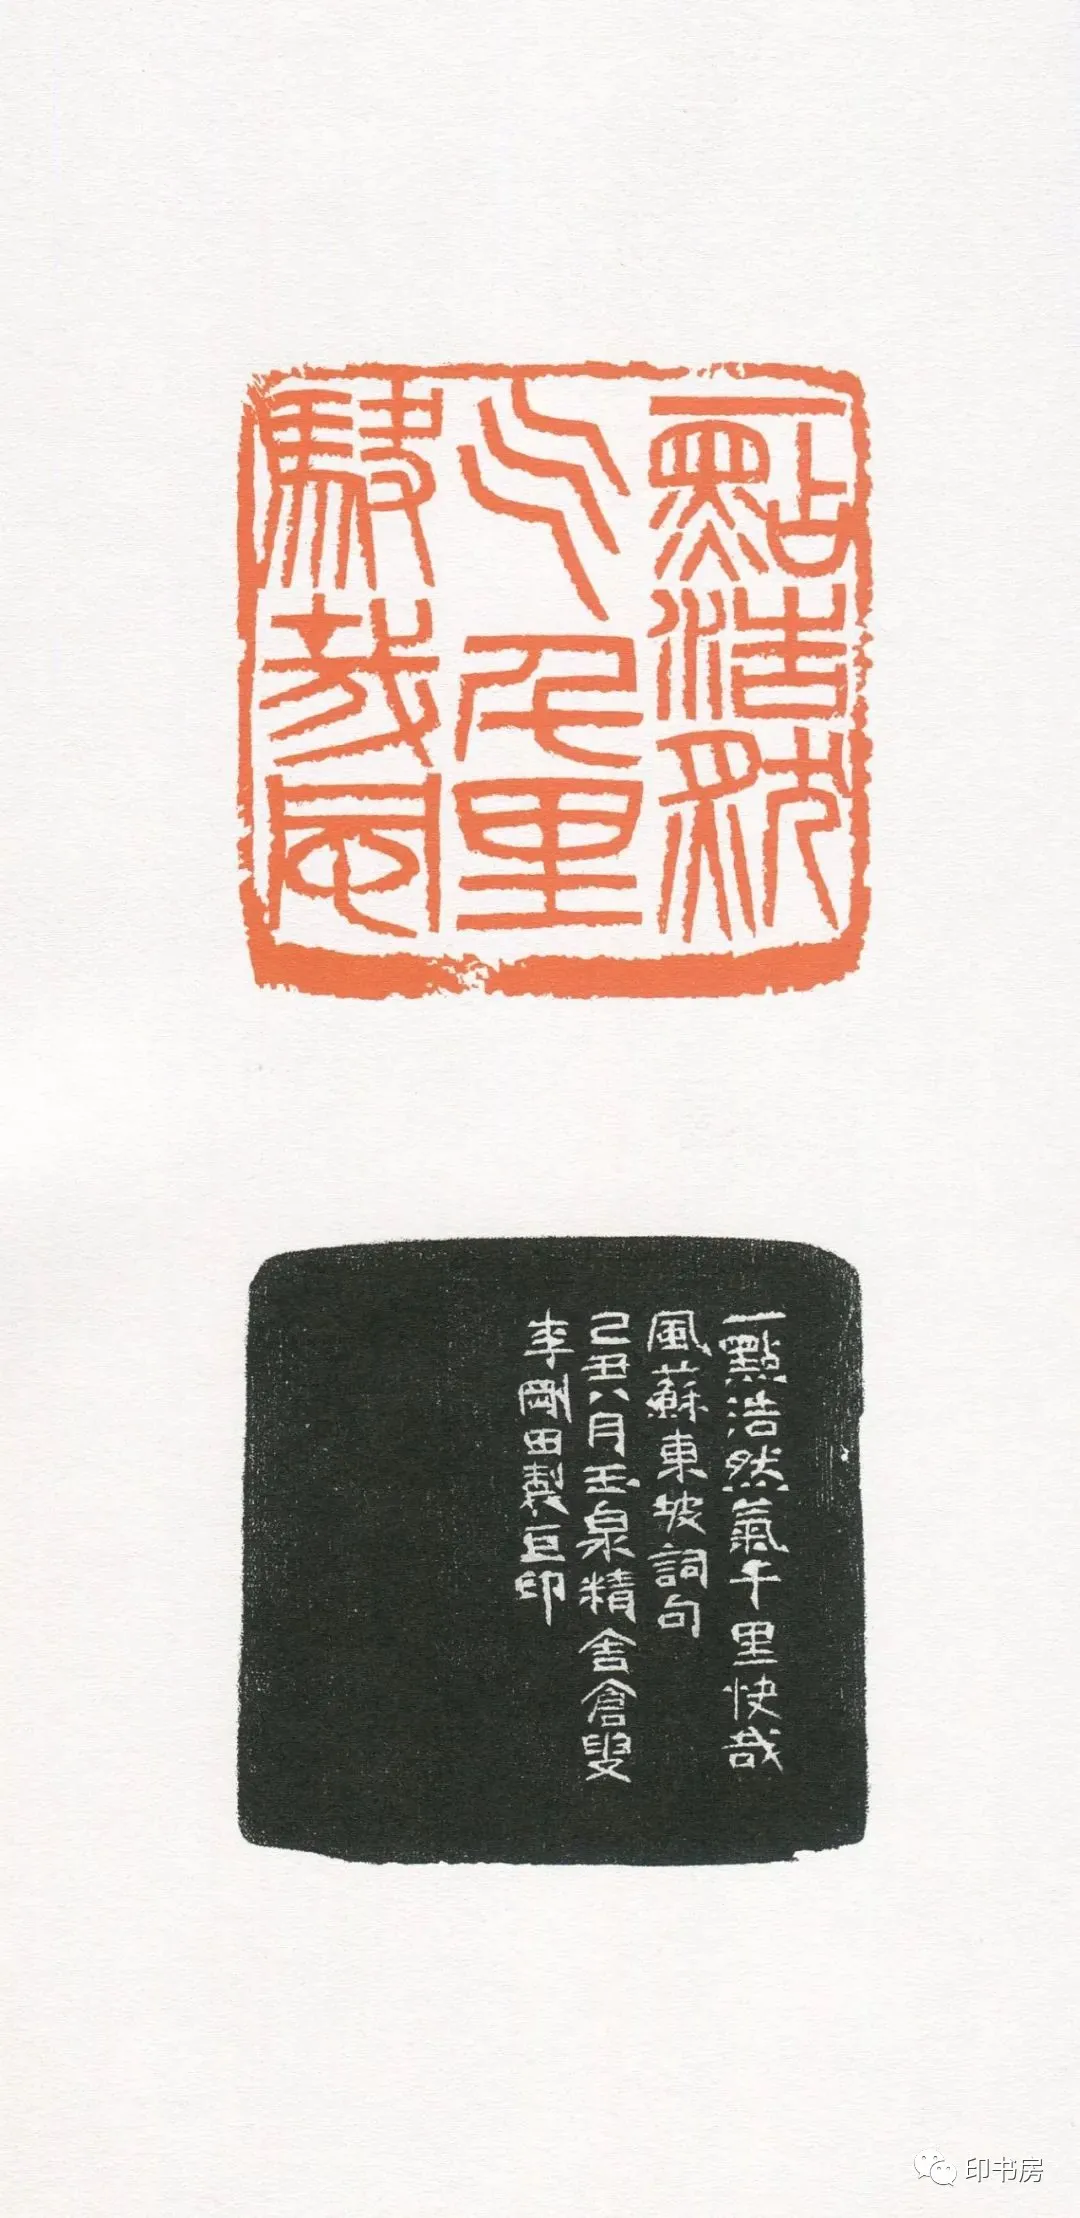 一點浩然
气千里
駃哉風
一點浩然氣千里快哉
風蘇東坡詞句
己丑八月玉泉精舍倉叟
李剛田製巨印
印书房